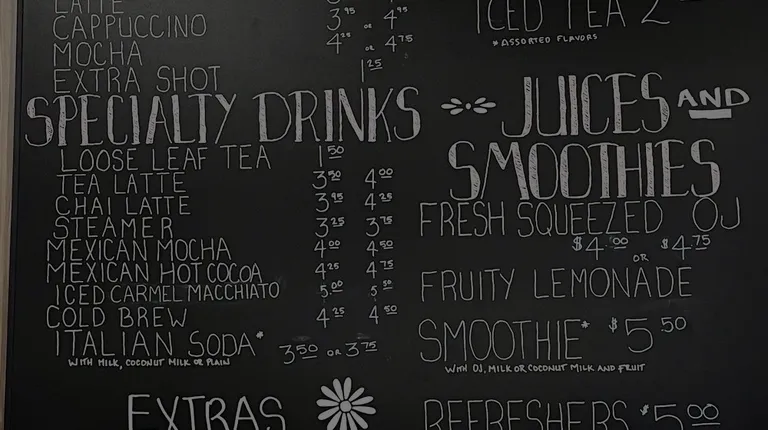 LATTE
CAPPUCCINO 3.95 OR 4.95
MOCHA 4.25 OR 4.75
EXTRA SHOT 1.25
SPECIALTY DRINKS
LOOSE LEAF TEA 1.50
TEA LATTE 3.50 4.00
CHAI LATTE 3.95 4.25
STEAMER 3.25 3.75
MEXICAN MOCHA 4.00 4.50
MEXICAN HOT COCOA 4.25 4.75
ICED CARMEL MACCHIATO 5.00 5.50
COLD BREW 4.25 4.50
ITALIAN SODA* 3.50 OR 3.75
WITH MILK, COCONUT MILK OR PLAIN
EXTRAS
ICED TEA 2
*ASSORTED FLAVORS
JUICES AND
SMOOTHIES
FRESH SQUEEZED OJ
$4.00 OR $4.75
FRUITY LEMONADE
SMOOTHIE* $5.50
WITH OJ, MILK OR COCONUT MILK AND FRUIT
REFRESHERS $5.00